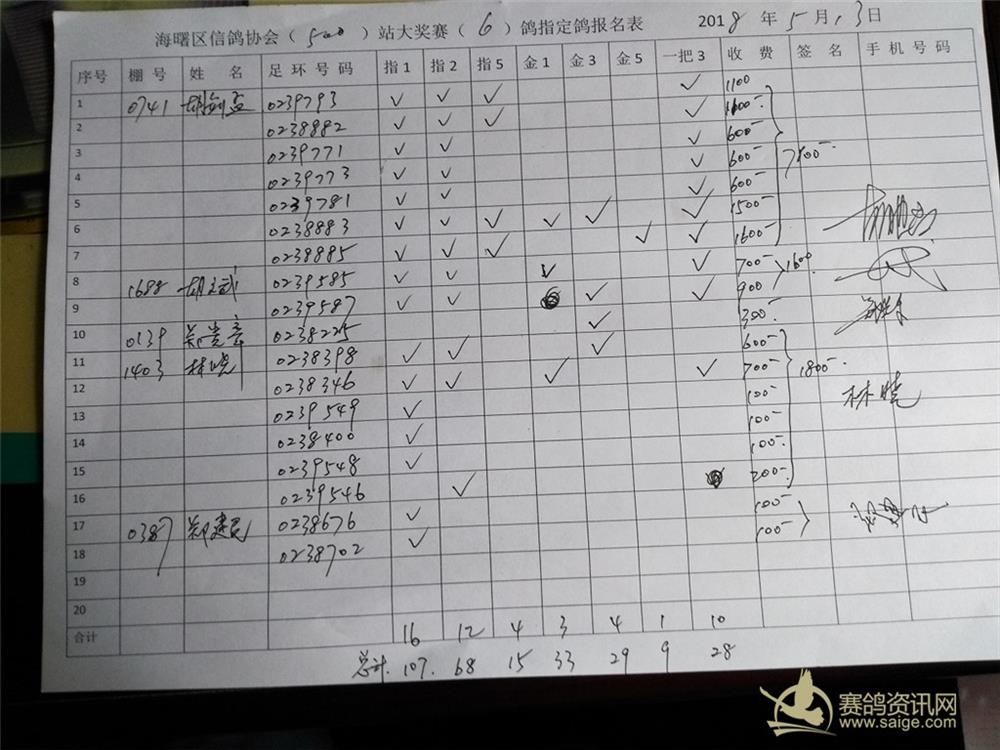 海曙区信鸽协会（500）站大奖赛（6）鸽指定鸽报名表 2018年5月13日
序号 棚号 姓名 足环号码 指1 指2 指5 金1 金3 金5 一把3 收费 签名 手机号码
1 0741 0239793 ✓ ✓ ✓ ✓ 1100
2 0238882 ✓ ✓ ✓ ✓ 1100-
3 0239771 ✓ ✓ ✓ 600-
4 0239773 ✓ ✓ ✓ 600- 7100-
5 0239781 ✓ ✓ ✓ 600-
6 0238883 ✓ ✓ ✓ ✓ ✓ ✓ 1500-
7 0238885 ✓ ✓ ✓ ✓ ✓ 1600-
8 1688 胡文武 0239585 ✓ ✓ ✓ ✓ 700- 1600
9 0239587 ✓ ✓ ✓ ✓ 900
10 0139 0238225 ✓ 300-
11 1403 林晓 0238398 ✓ ✓ ✓ 600-
12 0238346 ✓ ✓ ✓ ✓ 700- 1800-
13 0239549 ✓ 100- 林晓
14 0238400 ✓ 100-
15 0239548 ✓ 100-
16 0239546 ✓ 200-
17 0387 郑建民 0238676 ✓ 100-
18 0238702 ✓ 100-
19
20
合计 16 12 4 3 4 1 10
总计 107. 68 15 33 29 9 28
赛鸽资讯网
www.saige.com